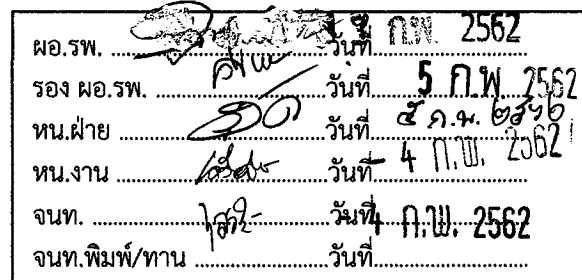 ผอ.รพ. ................ วันที่ ก.พ. 2562
รอง ผอ.รพ. ................ วันที่ 5 ก.พ. 2562
หน.ฝ่าย ................ วันที่ ๕ ก.พ. ๒๕๖๒
หน.งาน ................ วันที่ 4 ก.พ. 2562
จนท. ................ วันที่ 4 ก.พ. 2562
จนท.พิมพ์/ทาน ................ วันที่ ................